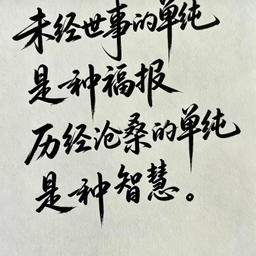 未经世事的单纯
是种福报
历经沧桑的单纯
是种智慧。